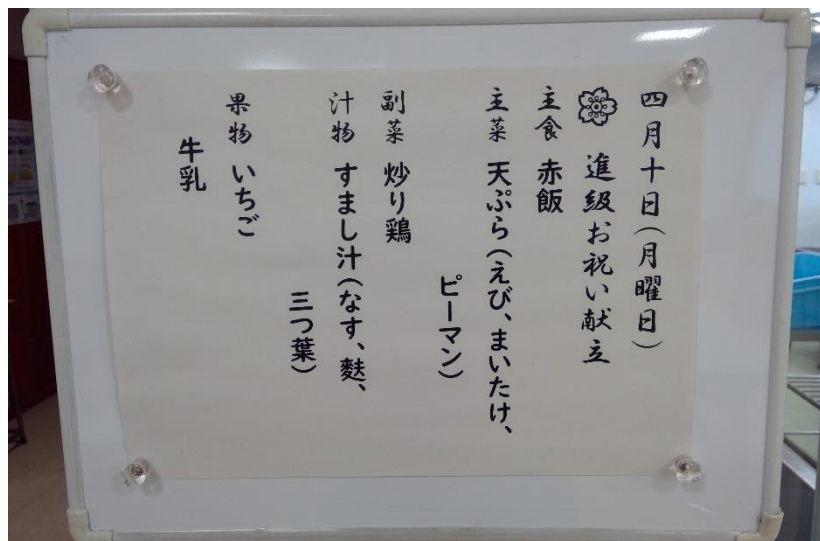 四月十日(月曜日)
進級お祝い献立
主食 赤飯
主菜 天ぷら(えび、まいたけ、
ピーマン)
副菜 炒り鶏
汁物 すまし汁(なす、麩、
三つ葉)
果物 いちご
牛乳